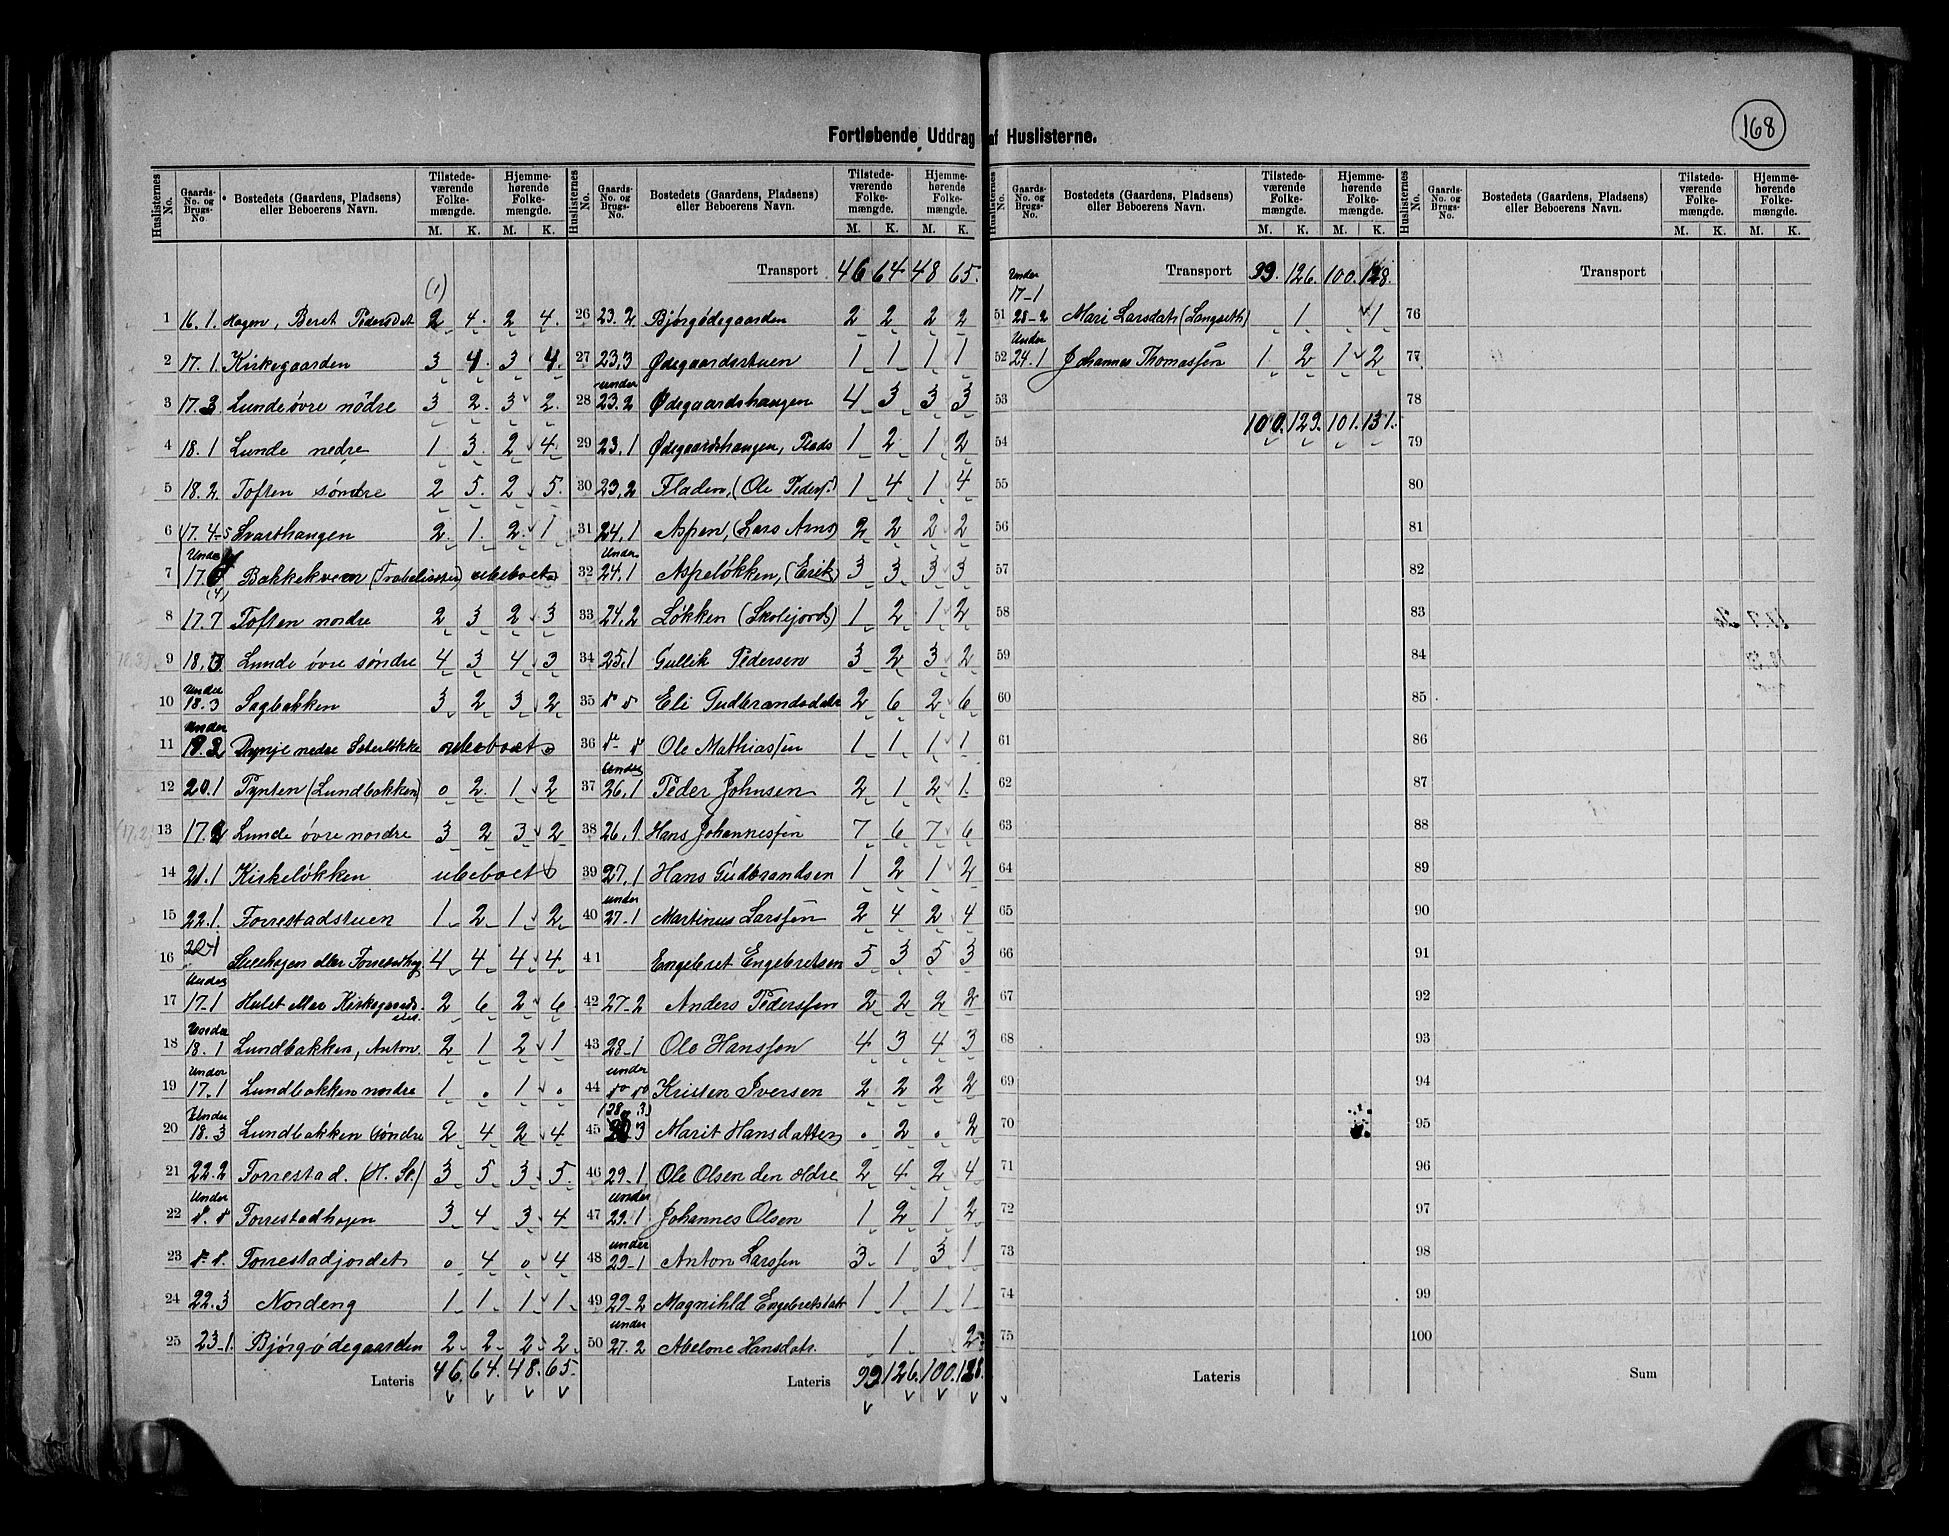 168
Fortløbende Uddrag af Huslisterne.
Huslisternes No. | Gaards-No. og Brugs-No. | Bostedets (Gaardens, Pladsens) eller Beboerens Navn. | Tilstede-værende Folke-mængde. M. K. | Hjemme-hørende Folke-mængde. M. K.
(1)
1 16.1. Hagen, Beret Pedersdat 2 4. 2 4.
2 17.1 Kirkegaarden 3 4. 3 4.
3 17.3 Lunde øvre nödre 3 2. 3 2.
4 18.1 Lunde nedre 1 3. 2 4.
5 18.2 Toften søndre 2 5. 2 5.
6 17.4-5 Svarthaugen 2. 1. 2. 1
7 Under 17. (4) Bakkekværn ubeboet
8 17.7 Toften nordre 2 3 2 3
9 18.3 Lunde øvre søndre 4 3 4 3
10 Under 18.3 Sagbakken 3 2 3 2
11 Under 19.2 Dynje nedre Sæterløkke ubeboet
12 20.1 Pynten (Lundbakken) 0 2. 1 2
13 17.2 Lunde övre nordre 3 2 3 2
14 21.1 Kirkeløkken ubeboet
15 22.1. Forrestadstuen 1 2 1 2
16 20-1 eller Forrestadhg. 4 4 4 4
17 Under 17-1 Hulst eller Kirkegaards. 2 6 2 6
18 Under 18.1 Lundbakken, Anton. 2 1 2 1
19 Under 17.1 Lundbakken nordre 1 . 1 .
20 Under 18.3 Lundbakken søndre 2 4 2 4
21 22.2 Forrestad. (H. St.) 3 5 3 5.
22 Under d. d Forrestadhagen 3 4 3 4
23 d. d. Forrestadjordet 0 4 0 4
24 22.3 Nordeng 1 1. 1 1.
25 23-1. Bjørgødegaarden 2 2 2 2
Lateris 46. 64. 48. 65.
Huslisternes No. | Gaards-No. og Brugs-No. | Bostedets (Gaardens, Pladsens) eller Beboerens Navn. | Tilstede-værende Folke-mængde. M. K. | Hjemme-hørende Folke-mængde. M. K.
Transport 46 64 48 65.
26 23.2 Bjørgødegaarden 2 2 2 2
27 23.3 Ødegaardsstuen 1 1 1 1
28 under 23.2 Ødegaardshaugen 4 3 3 3
29 23.1 Ødegaardshaugen, Plads 1 2 1 2
30 23.2 Fladen, (Ole Peders.) 1 4 1 4
31 24.1 Aspen, (Lars Arns) 2 2 2 2
32 Under 24.1 Aspeløkken, (Erik) 3 3 3 3
33 24.2 Løkken (Skolejords) 1 2 1 2
34 25.1 Gullik Pedersen 3 2 3 2
35 d d Eli Gudbrandsdatr 2 6 2 6
36 d d Ole Mathiassen 1 1 1 1
37 Under 26.1 Peder Johnsen 2 1 2 1.
38 26.1 Hans Johannessen 7 6 7 6
39 27.1 Hans Gudbrandsen 1 2 1 2
40 under 27-1 Martinus Larssen 2 4 2 4
41 Engebret Engebretsen 5 3 5 3
42 27-2 Anders Pederssen 2 2 2 2
43 28-1 Ole Hanssen 4 3 4 3
44 under do do Kristen Iversen 2 2 2 2
45 (28, 3) Marit Hansdatter . 2 . 2
46 29.1 Ole Olsen den ældre 2 4 2 4
47 under 29.1 Johannes Olsen 1 2 1 2
48 under 29-1 Anton Larssen 3 1 3 1
49 29-2 Magnihld Engebretsdatr 1 1 1 1
50 under 27.2 Abelone Hansdatr. 1 2
Lateris 99. 126. 100. 128.
Huslisternes No. | Gaards-No. og Brugs-No. | Bostedets (Gaardens, Pladsens) eller Beboerens Navn. | Tilstede-værende Folke-mængde. M. K. | Hjemme-hørende Folke-mængde. M. K.
Transport 99. 126. 100. 128.
Under 17-1
51 28-2 Mari Larsdatr (Langseth) 1 1
52 Under 24.1 Johannes Thomassen 1 2 1 2
53
100. 129. 101. 131.
54
55
56
57
58
59
60
61
62
63
64
65
66
67
68
69
70
71
72
73
74
75
Lateris
Huslisternes No. | Gaards-No. og Brugs-No. | Bostedets (Gaardens, Pladsens) eller Beboerens Navn. | Tilstede-værende Folke-mængde. M. K. | Hjemme-hørende Folke-mængde. M. K.
Transport
76
77
78
79
80
81
82
83
84
85
86
87
88
89
90
91
92
93
94
95
96
97
98
99
100
Sum